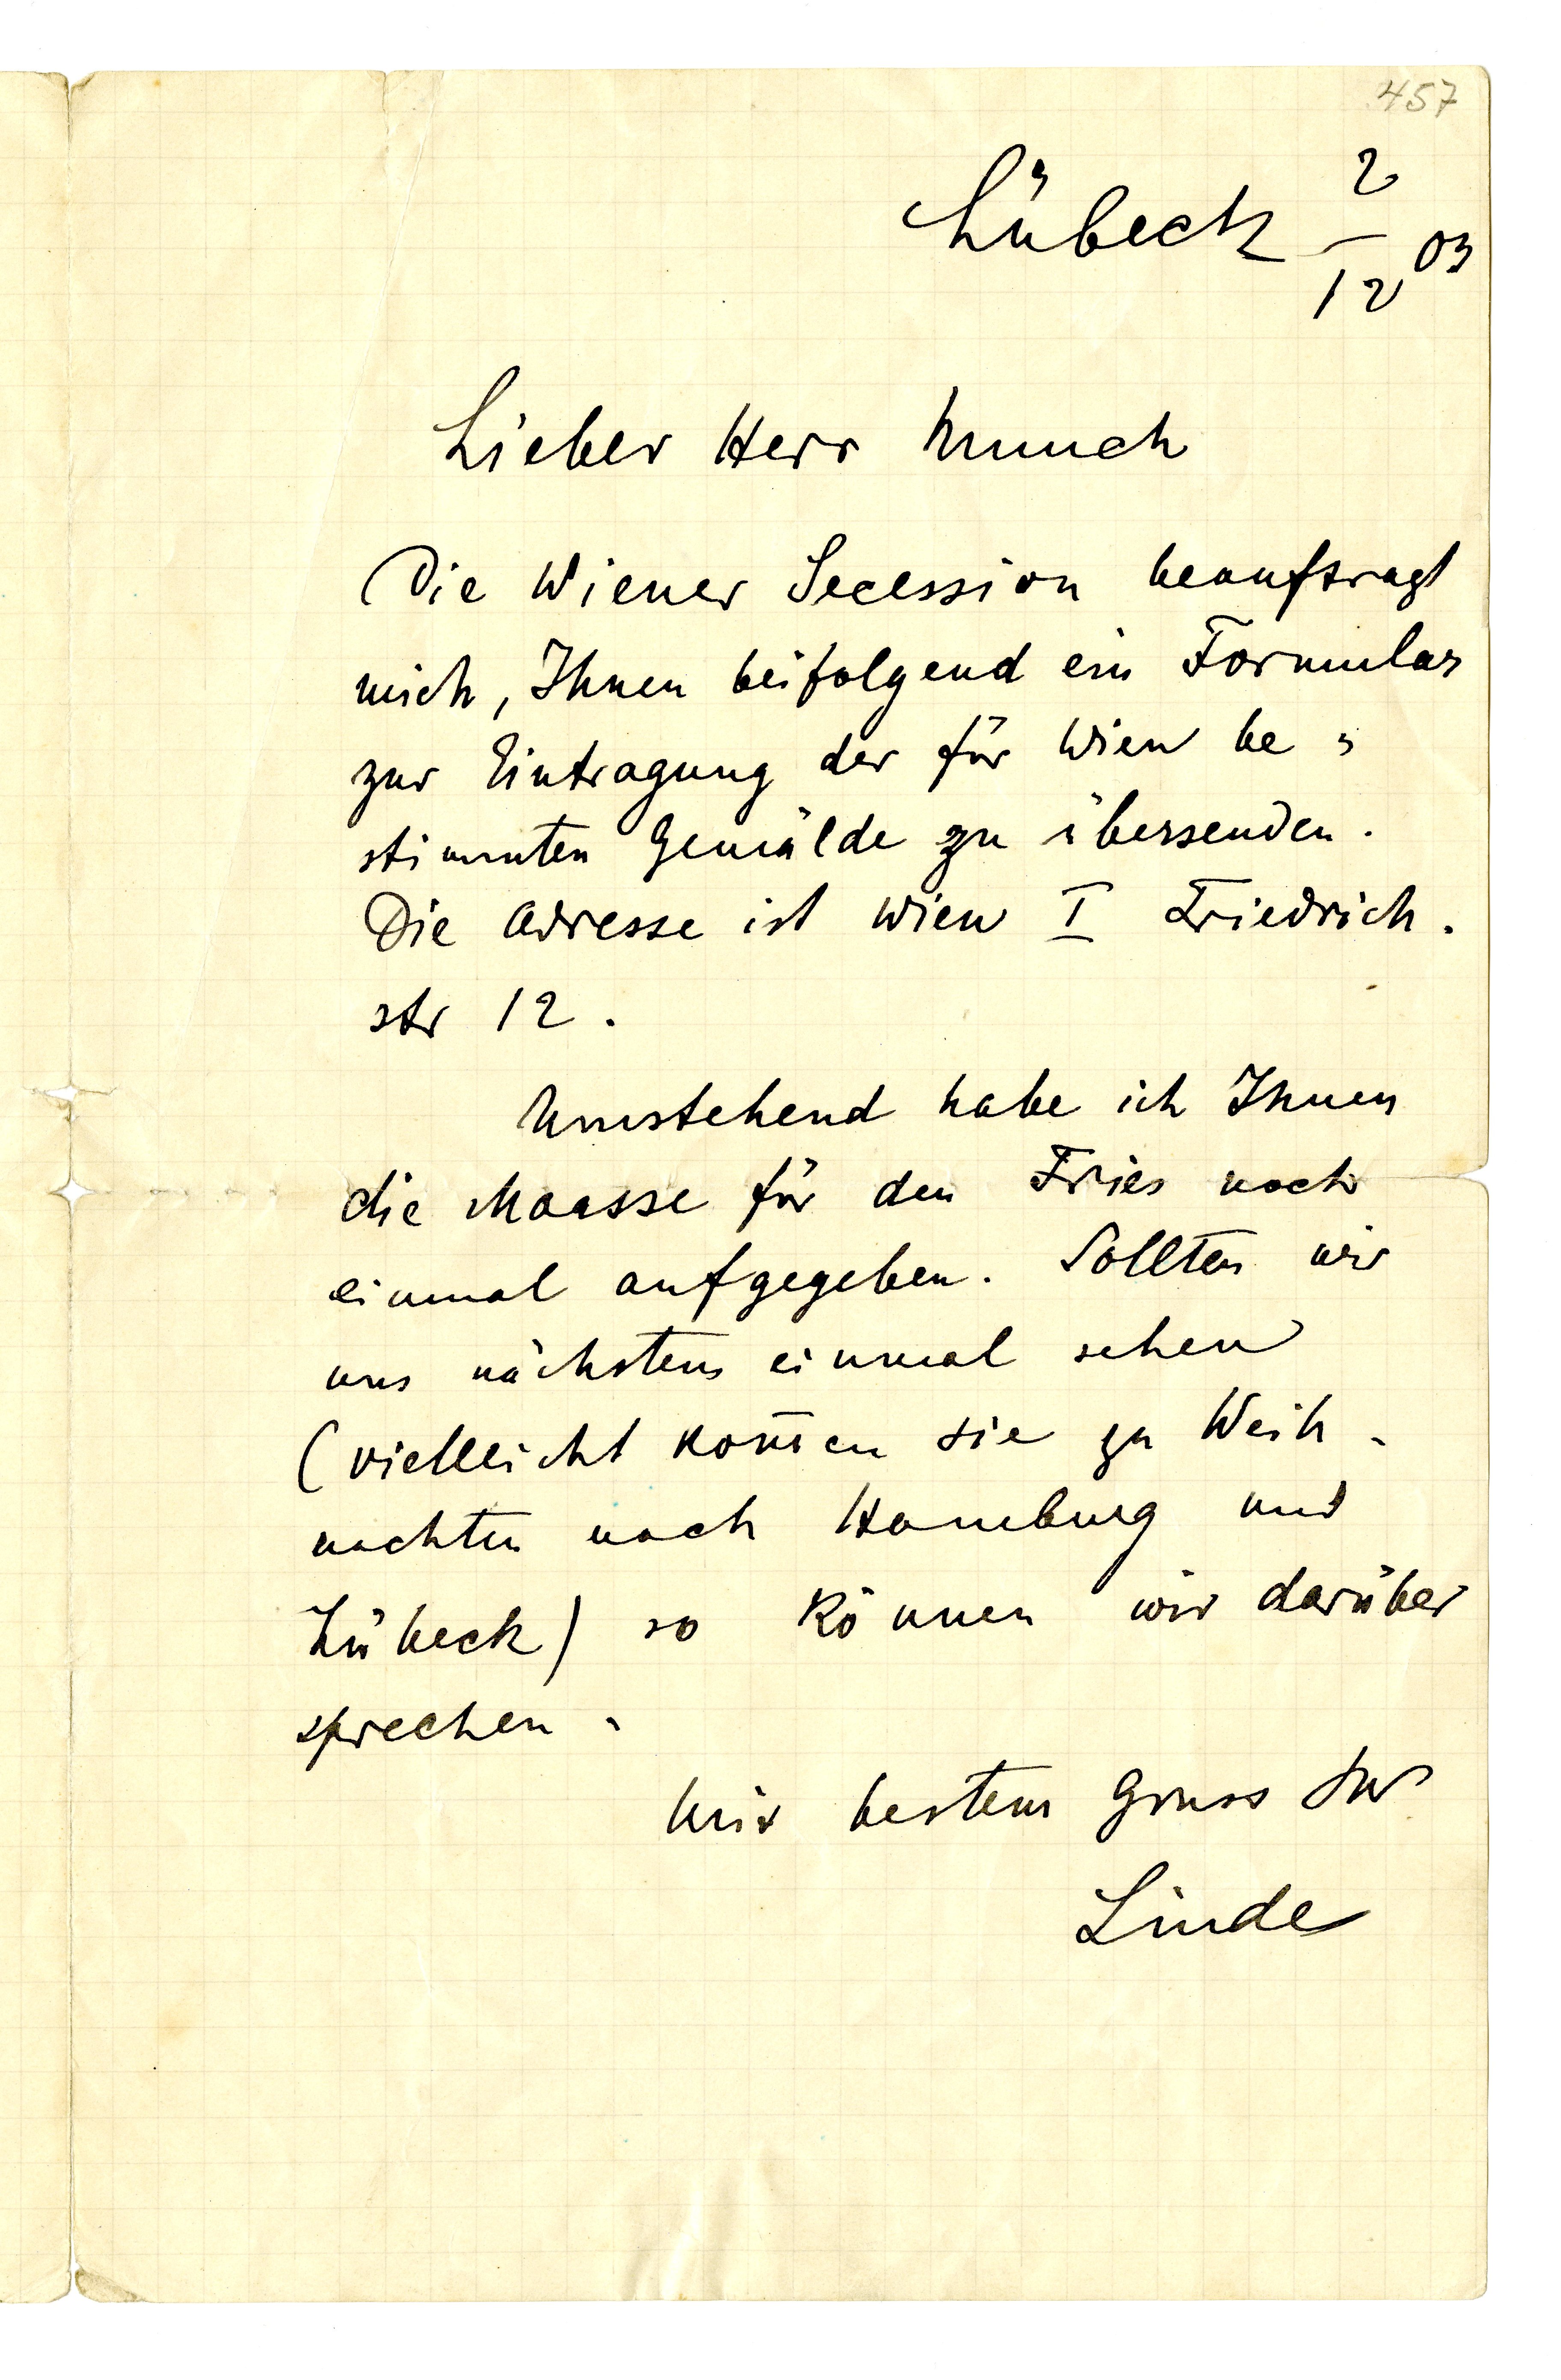 457
Lübeck 2/12 03
Lieber Herr Munch
Die Wiener Secession beauftragt
mich, Ihnen beifolgend ein Formular
zur Eintragung der für Wien be-
stimmten Gemälde zu übersenden.
Die Adresse ist Wien I Friedrich-
str 12.
Umstehend habe ich Ihnen
die Maasse für den Fries noch
einmal aufgegeben. Sollten wir
uns nächstens einmal sehen
(vielleicht kom̅en Sie zu Weih-
nachten nach Hamburg und
Lübeck) so können wir darüber
sprechen.
Mit bestem Gruss Ihr
Linde